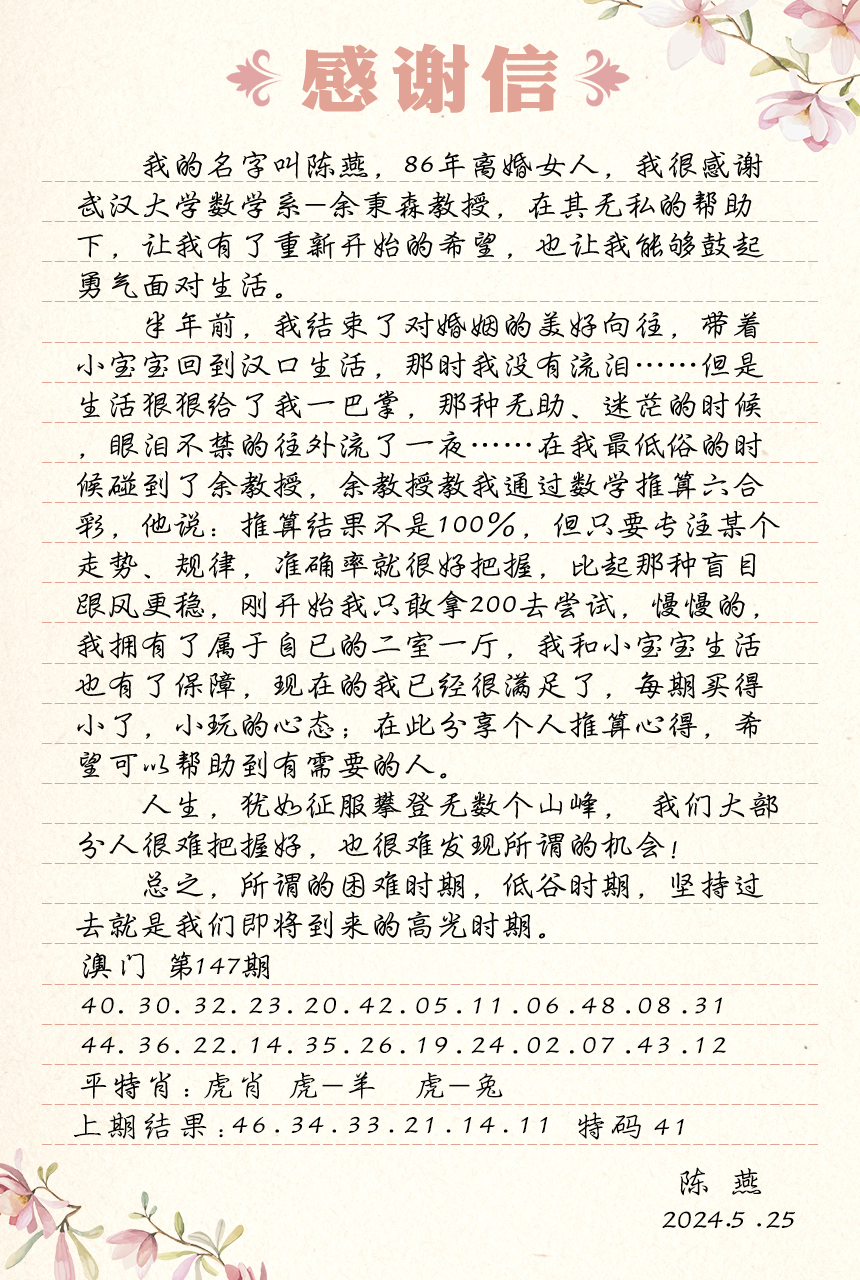 感谢信
我的名字叫陈燕，86年离婚女人，我很感谢
武汉大学数学系—余秉森教授，在其无私的帮助
下，让我有了重新开始的希望，也让我能够鼓起
勇气面对生活。
半年前，我结束了对婚姻的美好向往，带着
小宝宝回到汉口生活，那时我没有流泪……但是
生活狠狠给了我一巴掌，那种无助、迷茫的时候
，眼泪不禁的往外流了一夜……在我最低俗的时
候碰到了余教授，余教授教我通过数学推算六合
彩，他说：推算结果不是100%，但只要专注某个
走势、规律，准确率就很好把握，比起那种盲目
跟风更稳，刚开始我只敢拿200去尝试，慢慢的，
我拥有了属于自已的二室一厅，我和小宝宝生活
也有了保障，现在的我已经很满足了，每期买得
小了，小玩的心态；在此分享个人推算心得，希
望可以帮助到有需要的人。
人生，犹如征服攀登无数个山峰， 我们大部
分人很难把握好，也很难发现所谓的机会！
总之，所谓的困难时期，低谷时期，坚持过
去就是我们即将到来的高光时期。
澳门 第147期
40.30.32.23.20.42.05.11.06.48.08.31
44.36.22.14.35.26.19.24.02.07.43.12
平特肖：虎肖 虎—羊 虎—兔
上期结果：46.34.33.21.14.11 特码 41
陈 燕
2024.5.25